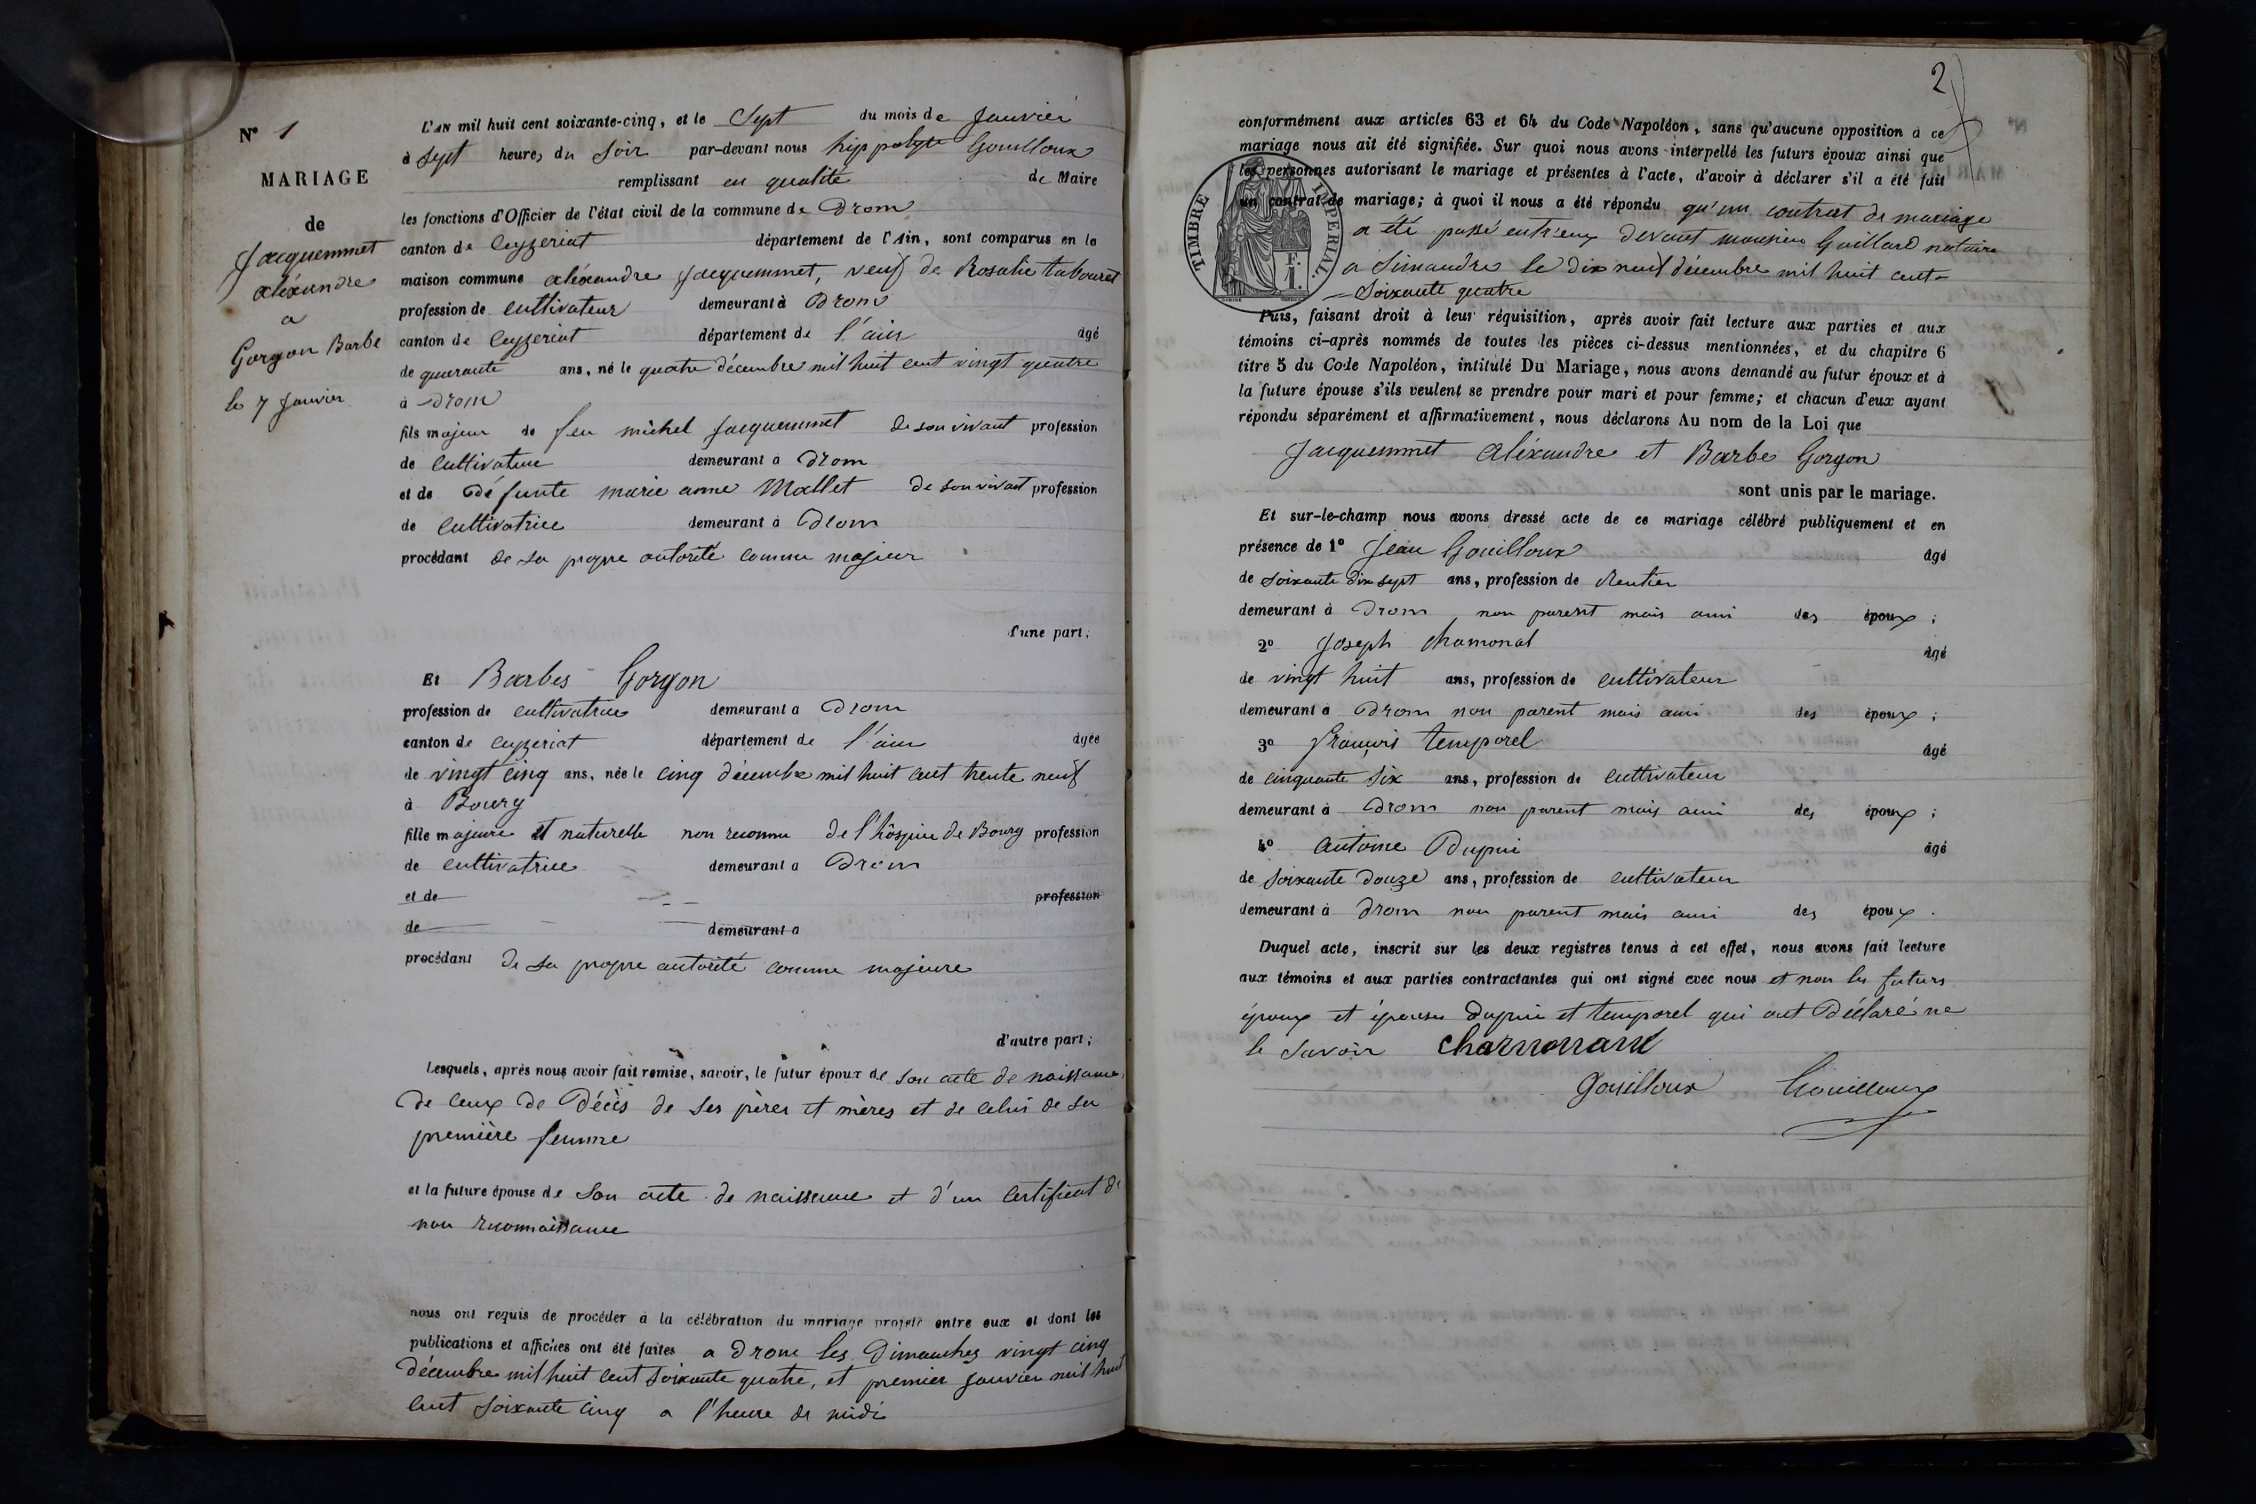 N° 1
MARIAGE
de
Jacquemmet
aléxandre
a
Gorgon Barbe
le 7 Janvier
L'AN mil huit cent soixante-cinq, et le Sept du mois de Janvier
à Sept heures du Soir par-devant nous hippolyte Gouilloux
remplissant en qualité de Maire
les fonctions d'Officier de l'état civil de la commune de Drom
canton de Ceyzeriat département de l'Ain, sont comparus en la
maison commune aléxandre Jacquemmet, veuf de Rosalie tabouret
profession de cultivateur demeurant à Drom
canton de Ceyzeriat département de l'ain âgé
de quarante ans, né le quatre décembre mil huit cent vingt quatre
à Drom
fils majeur de feu michel Jacquemmet de son vivant profession
de cultivateur demeurant à Drom
et de Défunte marie anne Mallet de son vivant profession
de cultivatrice demeurant à Drom
procédant de sa propre autorité comme majeur
d'une part;
Et Barbes Gorgon
profession de cultivatrice demeurant à Drom
canton de ceyzeriat département de l'ain âgée
de vingt cinq ans, née le cinq décembre mil huit cent trente neuf
à Bourg
fille majeure et naturelle non reconnu de l'hôspice de Bourg profession
de cultivatrice demeurant à Drom
et de profession
de demeurant à
procédant de sa propre autorité comme majeure
d'autre part;
Lesquels, après nous avoir fait remise, savoir, le futur époux de son acte de naissance,
de ceux de Décès de ses pères et mères et de celui de sa
première femme
et la future épouse de son acte de naissance et d'un certificat de
non reconnaissance
nous ont requis de procéder à la célébration du mariage projeté entre eux et dont les
publications et affiches ont été faites a Drom les Dimanches vingt cinq
décembre mil huit cent soixante quatre, et premier janvier mil huit
cent soixante cinq a l'heure de midi
2
conformément aux articles 63 et 64 du Code Napoléon, sans qu'aucune opposition à ce
mariage nous ait été signifiée. Sur quoi nous avons interpellé les futurs époux ainsi que
les personnes autorisant le mariage et présentes à l'acte, d'avoir à déclarer s'il a été fait
un contrat de mariage; à quoi il nous a été répondu qu'un contrat de mariage
a été passé entr'eux devant monsieur Gaillard notaire
a Simandre le dix neuf décembre mil huit cent
soixante quatre
TIMBRE IMPERIAL.
F.
1.
Puis, faisant droit à leur réquisition, après avoir fait lecture aux parties et aux
témoins ci-après nommés de toutes les pièces ci-dessus mentionnées, et du chapitre 6
titre 5 du Code Napoléon, intitulé Du Mariage, nous avons demandé au futur époux et à
la future épouse s'ils veulent se prendre pour mari et pour femme; et chacun d'eux ayant
répondu séparément et affirmativement, nous déclarons Au nom de la Loi que
Jacquemmet Aléxandre et Barbe Gorgon
sont unis par le mariage.
Et sur-le-champ nous avons dressé acte de ce mariage célébré publiquement et en
présence de 1° Jean Gouilloux âgé
de soixante dix sept ans, profession de Rentier
demeurant à Drom non parent mais ami des époux;
2° Joseph Chamonal âgé
de vingt huit ans, profession de cultivateur
demeurant à Drom non parent mais ami des époux;
3° françois temporel âgé
de cinquante six ans, profession de cultivateur
demeurant à Drom non parent mais ami des époux;
4° Antoine Dupui âgé
de soixante douze ans, profession de cultivateur
demeurant à Drom non parent mais ami des époux.
Duquel acte, inscrit sur les deux registres tenus à cet effet, nous avons fait lecture
aux témoins et aux parties contractantes qui ont signé avec nous et non les futurs
époux et épouse Dupui et temporel qui ont Déclaré ne
le savoir
Gouilloux Gouilloux